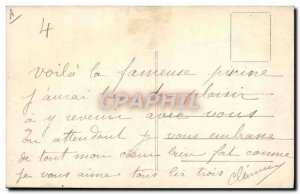 4
Voilà la fameuse piscine
j'aurai bien du plaisir
à y revenir avec vous
En attendant je vous embrasse
de tout mon coeur bien fort comme
je vous aime tous les trois
CPArama.com